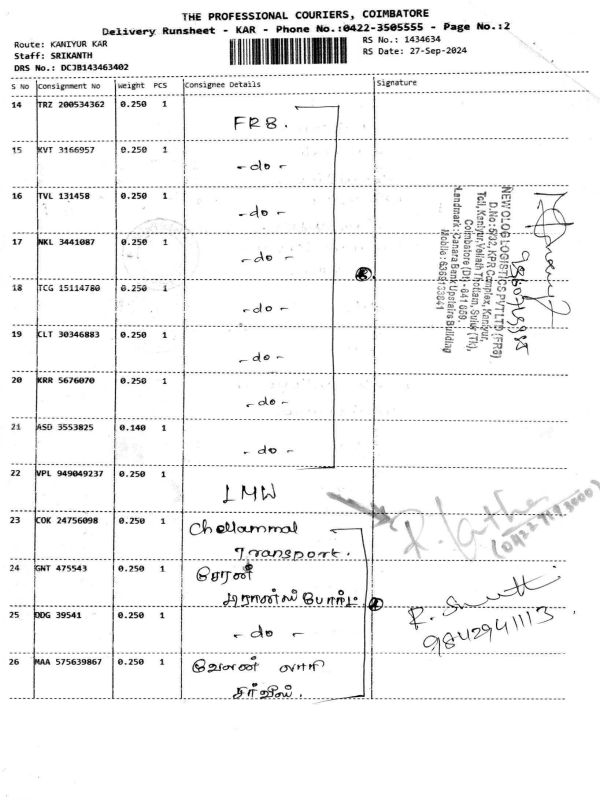 THE PROFESSIONAL COURIERS, COIMBATORE
Delivery Runsheet - KAR - Phone No.:0422-3505555 - Page No.:2
Route: KANIYUR KAR
Staff: SRIKANTH
DRS No.: DCJB143463402
RS No.: 1434634
RS Date: 27-Sep-2024
S No Consignment No Weight PCS Consignee Details Signature
14 TRZ 200534362 0.250 1 FR8.
15 KVT 3166957 0.250 1 -do-
16 TVL 131458 0.250 1 -do-
17 NKL 3441087 0.250 1 -do-
18 TCG 15114780 0.250 1 -do-
19 CLT 30346883 0.250 1 -do-
20 KRR 5676070 0.250 1 -do-
21 ASD 3553825 0.140 1 -do-
22 VPL 949049237 0.250 1 LMW
23 COK 24756098 0.250 1 Chellammal
Transport.
24 GNT 475543 0.250 1 சேரன்
டிரான்ஸ்போர்ட்
25 DDG 39541 0.250 1 -do-
26 MAA 575639867 0.250 1 வேலன் லாரி
சர்வீஸ்.
NEW OLOG LOGISTICS PVT LTD (FR8)
D.No: 5/32, KPR Complex, Kaniyur,
Toll, Kaniyur, Thottam, Sulur (Tk),
Coimbatore (Dt) - 641 659.
Landmark : Canara Bank Upstairs Building
Mobile : 6369133841
R.
R.
9842941113